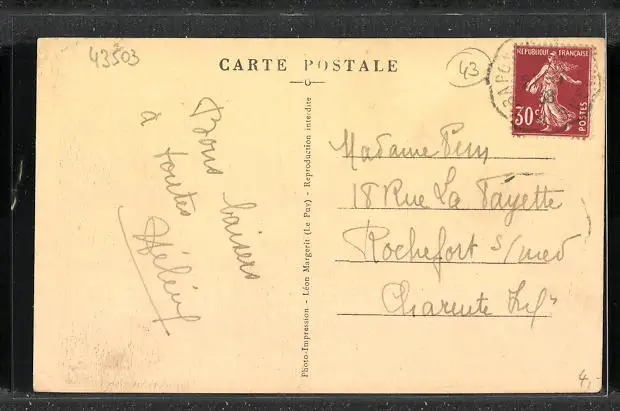 43503
CARTE POSTALE
43
REPUBLIQUE FRANÇAISE
30c
POSTES
Bons baisers
à toutes
Hélène
Photo-Impression - Léon Margerit (Le Puy) - Reproduction interdite
Madame
18 Rue La Fayette
Rochefort s/mer
Charente Inf
4,